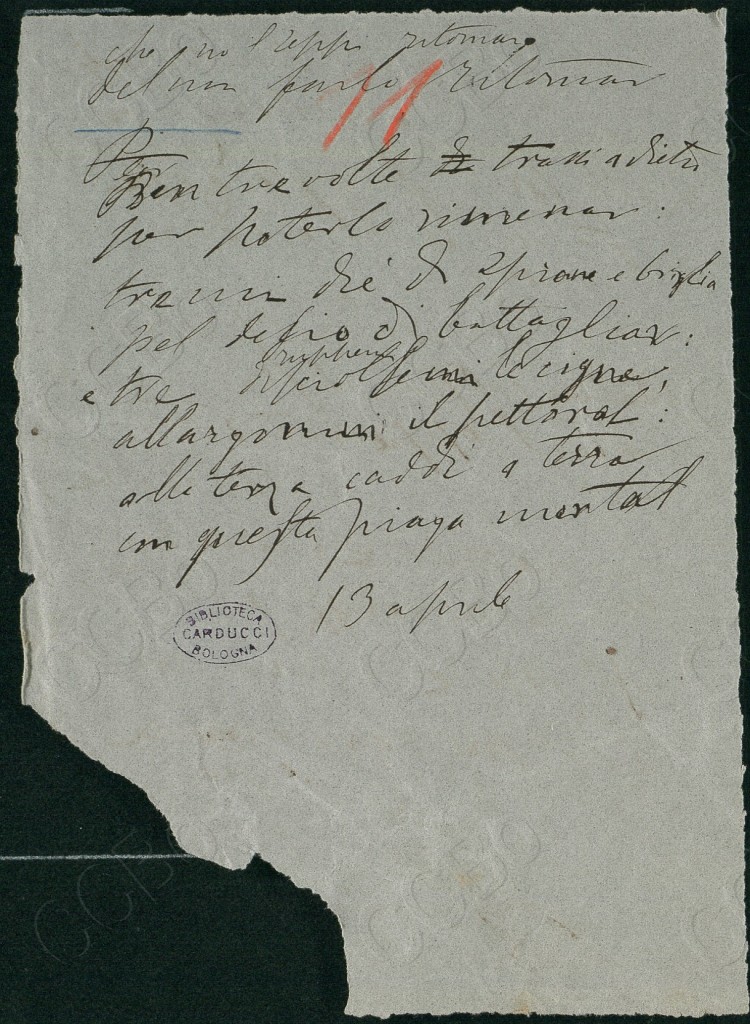 che no 'l seppi ritornar
del non farlo ritornar
11
Ben tre volte trassi a dietro
per poterlo rimenar:
tre mi diè di sprone e briglia
pel desio di battagliar:
e tre disciolsemi le cigne,
allargommi il pettoral:
alla terza caddi a terra
con questa piaga mortal
13 aprile
BIBLIOTECA
CARDUCCI
BOLOGNA